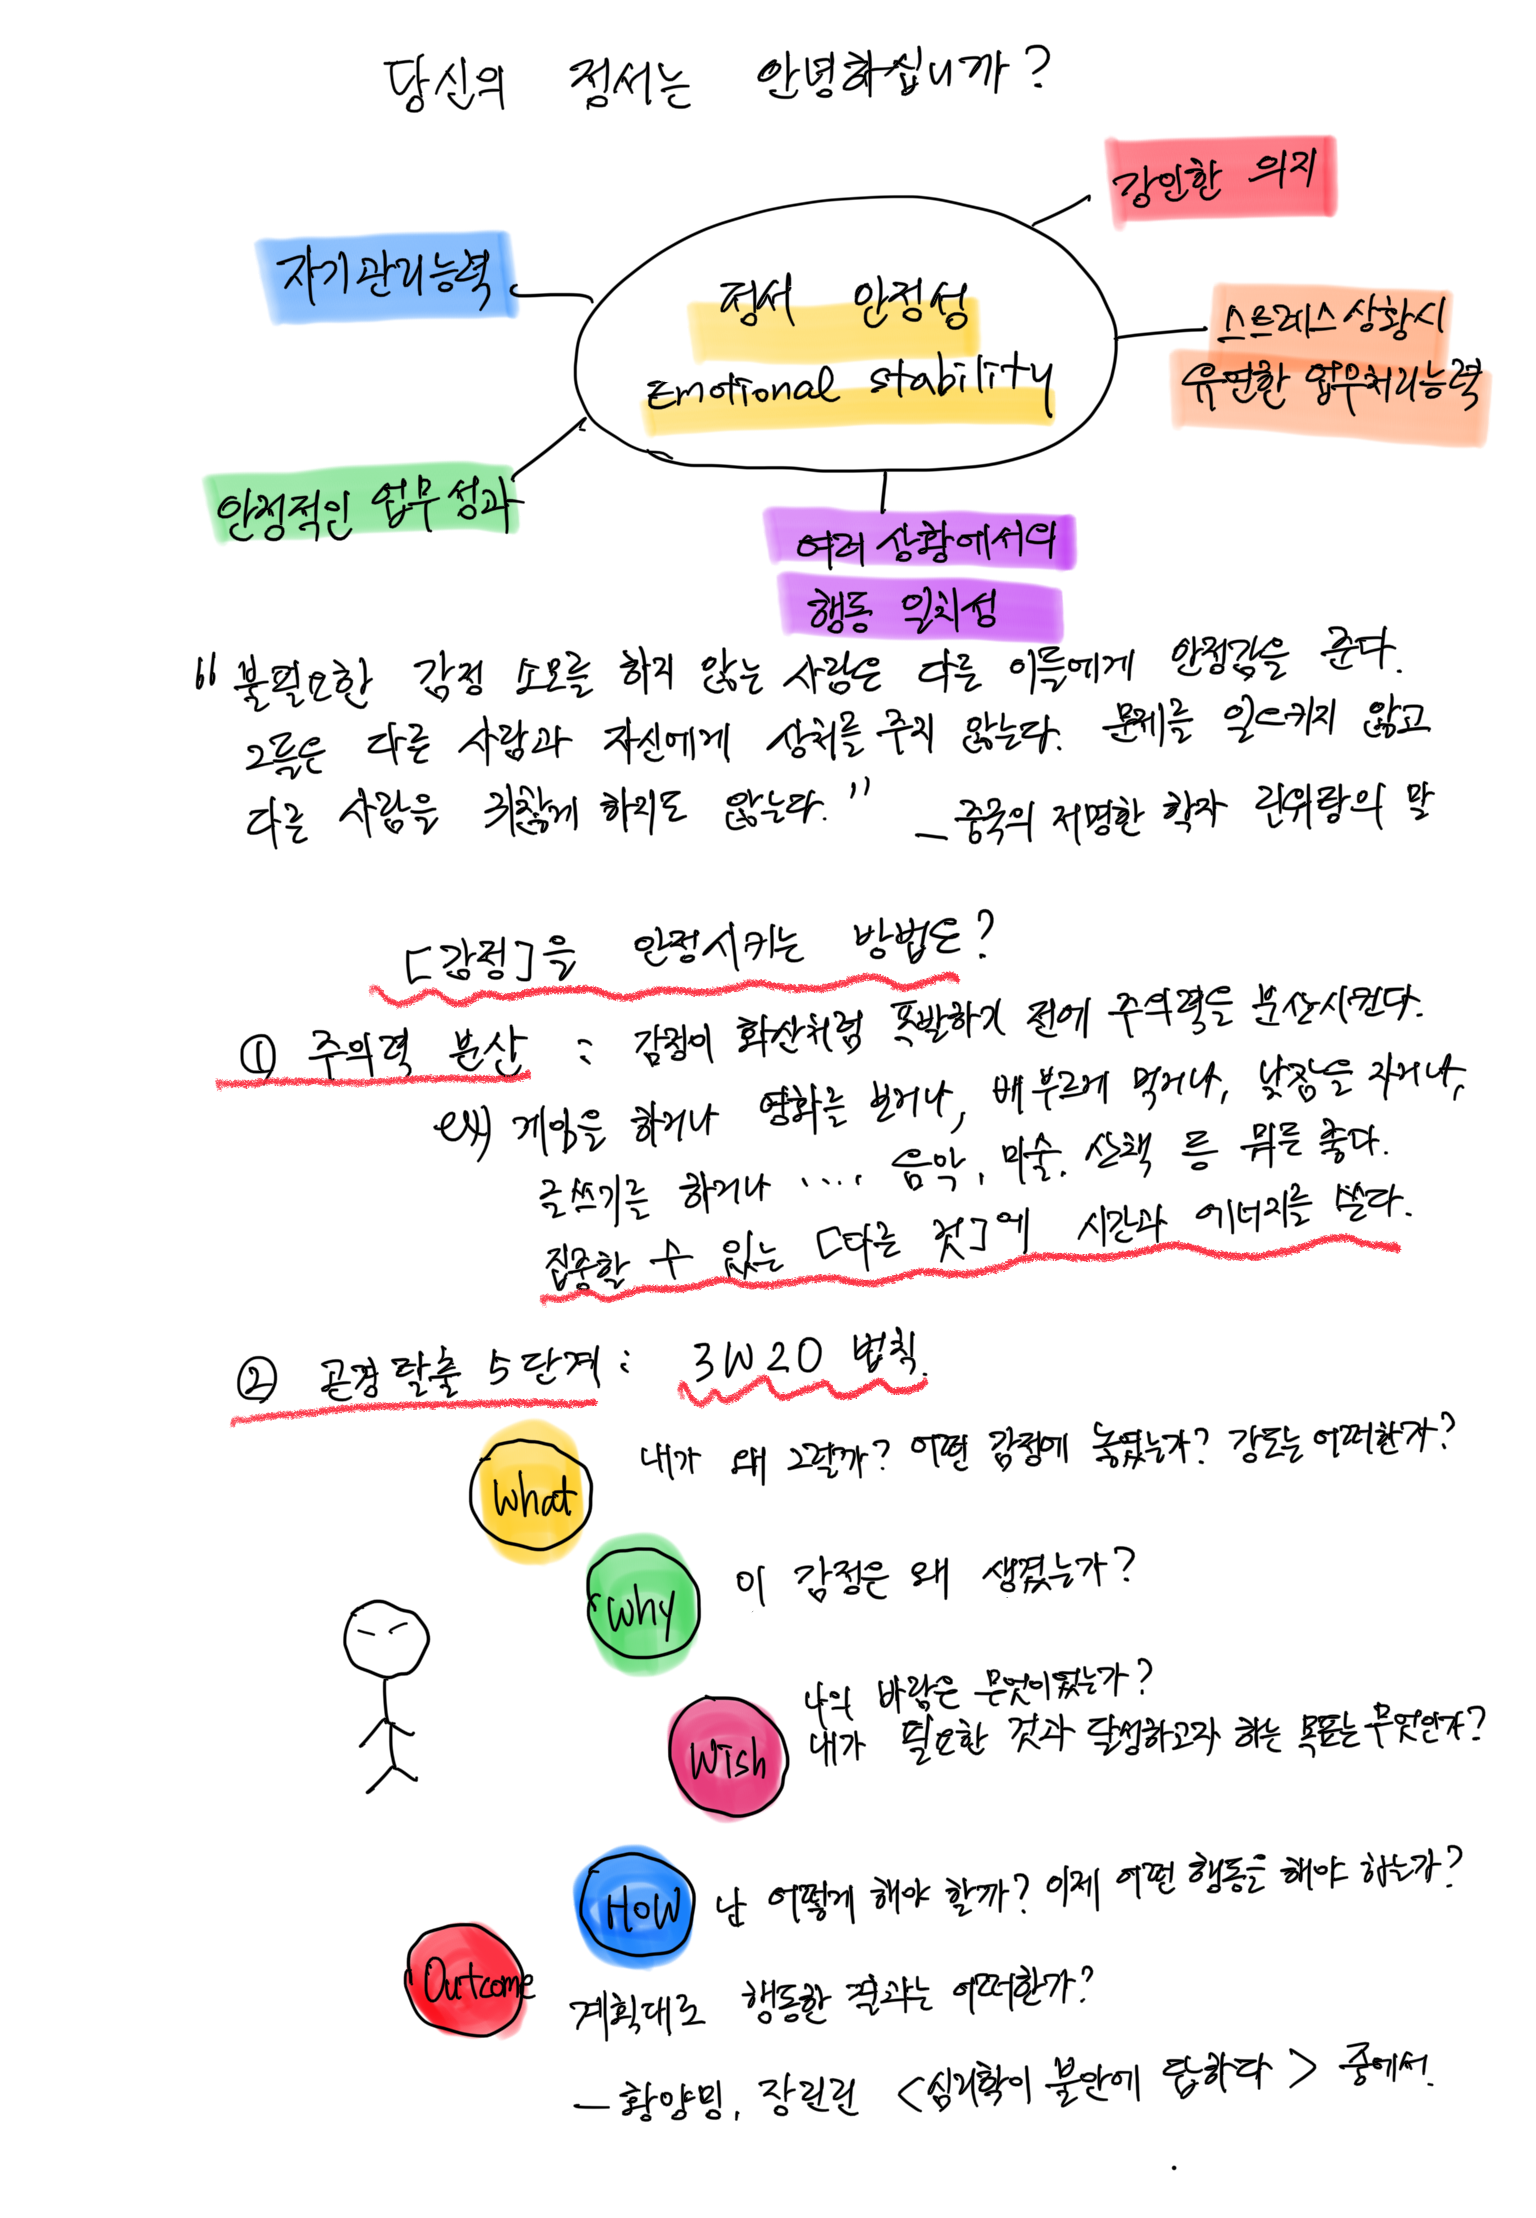 당신의 정서는 안녕하십니까?
강인한 의지
자기관리능력
정서 안정성
Emotional stability
스트레스 상황시
유연한 업무처리능력
안정적인 업무성과
여러 상황에서의
행동 일치성
"불필요한 감정 소모를 하지 않는 사람은 다른 이들에게 안정감을 준다.
그들은 다른 사람과 자신에게 상처를 주지 않는다. 문제를 일으키지 않고
다른 사람을 귀찮게 하지도 않는다."
- 중국의 저명한 학자 린위탕의 말
[감정]을 안정시키는 방법은?
① 주의력 분산 : 감정이 화산처럼 폭발하기 전에 주의력을 분산시킨다.
ex) 게임을 하거나 영화를 보거나, 배부르게 먹거나, 낮잠을 자거나,
글쓰기를 하거나 .... 음악, 미술, 산책 등 뭐든 좋다.
집중할 수 있는 [다른 것]에 시간과 에너지를 쓴다.
② 곤경 탈출 5단계 : 3W2O 법칙.
What 내가 왜 그럴까? 어떤 감정에 놓였는가? 강도는 어떠한가?
Why 이 감정은 왜 생겼는가?
나의 바람은 무엇이었는가?
Wish 내가 필요한 것과 달성하고자 하는 목표는 무엇인가?
HOW 난 어떻게 해야 할까? 이제 어떤 행동을 해야 하는가?
Outcome 계획대로 행동한 결과는 어떠한가?
- 황양밍, 장린린 <심리학이 불안에 답하다> 중에서.